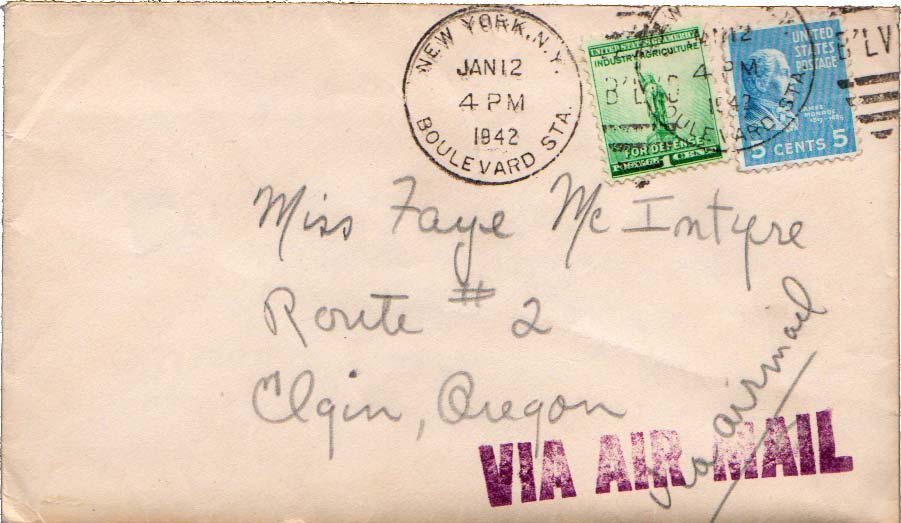 NEW YORK, N.Y.
JAN 12
4 PM
1942
BOULEVARD STA.
UNITED STATES OF AMERICA
INDUSTRY AGRICULTURE
FOR DEFENSE
POSTAGE 1 CENT
UNITED
STATES
POSTAGE
JAMES
MONROE
5 CENTS 5
JAN 12
4 PM
1942
BOULEVARD STA.
B'LV'D
B'LV
Miss Faye McIntyre
Route # 2
Elgin, Oregon
Via airmail
VIA AIR MAIL